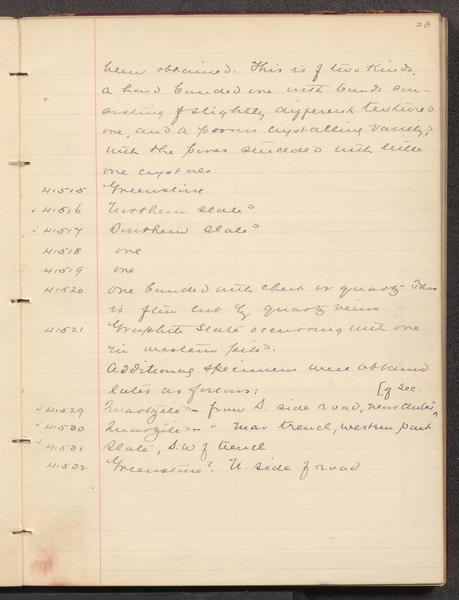 23
been obtained. This is of two kinds,
a hard banded one with bands con-
sisting of slightly different textured
ore, and a porous crystalline variety,
with the pores studded with little
ore crystals
41515 Greenstone
✓ 41516 Northern slate?
✓ 41517 Southern slate?
41518 ore
41519 ore
41520 ore banded with chert or quartz This
is often cut by quartz veins
41521 Graphite slate occurring with ore
in western pits.
Additional specimens were obtained
later as follows: [of Sec.
✓ 41529 Quartzite – from S. side road, near center
✓ 41530 Quartzite – " near trench, western part
✓ 41531 Slate, S.W of trench
41532 Greenstone? N. side of road